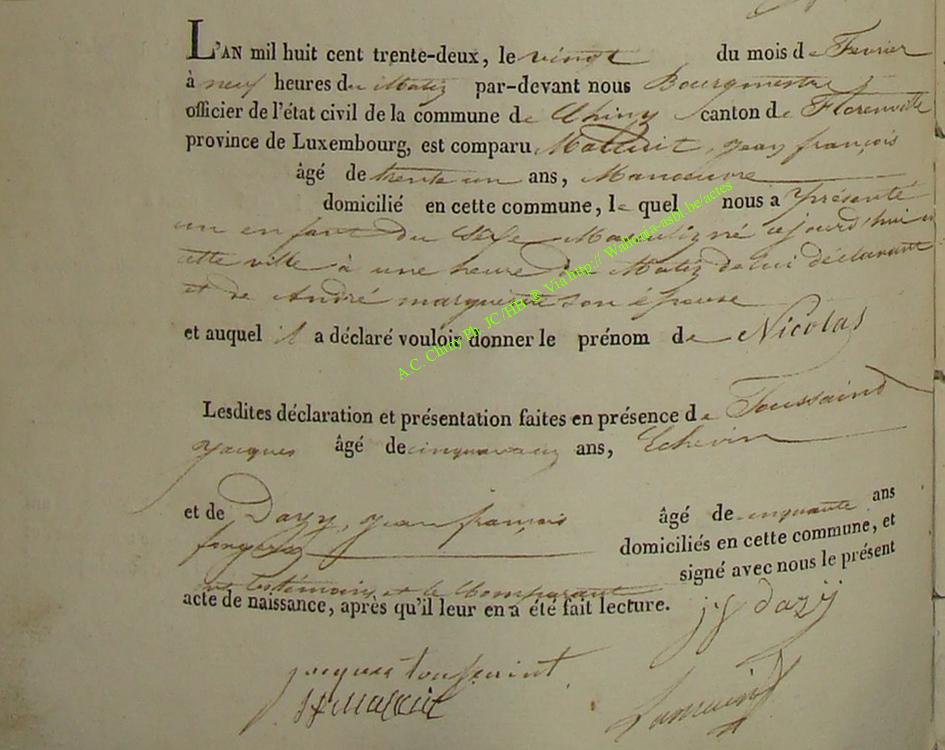 L'AN mil huit cent trente-deux, le vingt du mois de Fevrier
à neuf heures du Matin par-devant nous Bourgmestre
officier de l'état civil de la commune de Chiny canton de Florenville
province de Luxembourg, est comparu Jean françois
âgé de trente un ans, Manoeuvre
domicilié en cette commune, le quel nous a présenté
un enfant du Sexe Masculin né
cette ville à une heure du Matin de lui déclarant
et de André marguerite son épouse
et auquel il a déclaré vouloir donner le prénom de Nicolas
Lesdites déclaration et présentation faites en présence de Toussaint
jacques âgé de ans, Echevin
et de Dazy, jean françois âgé de cinquante ans
domiciliés en cette commune, et
ont les témoins et le Comparant signé avec nous le présent
acte de naissance, après qu'il leur en a été fait lecture.
jf dazÿ
jacques toussaint
A.C. Chiny Ph. JC/HEL® Via http:// Wallonia-asbl.be/actes